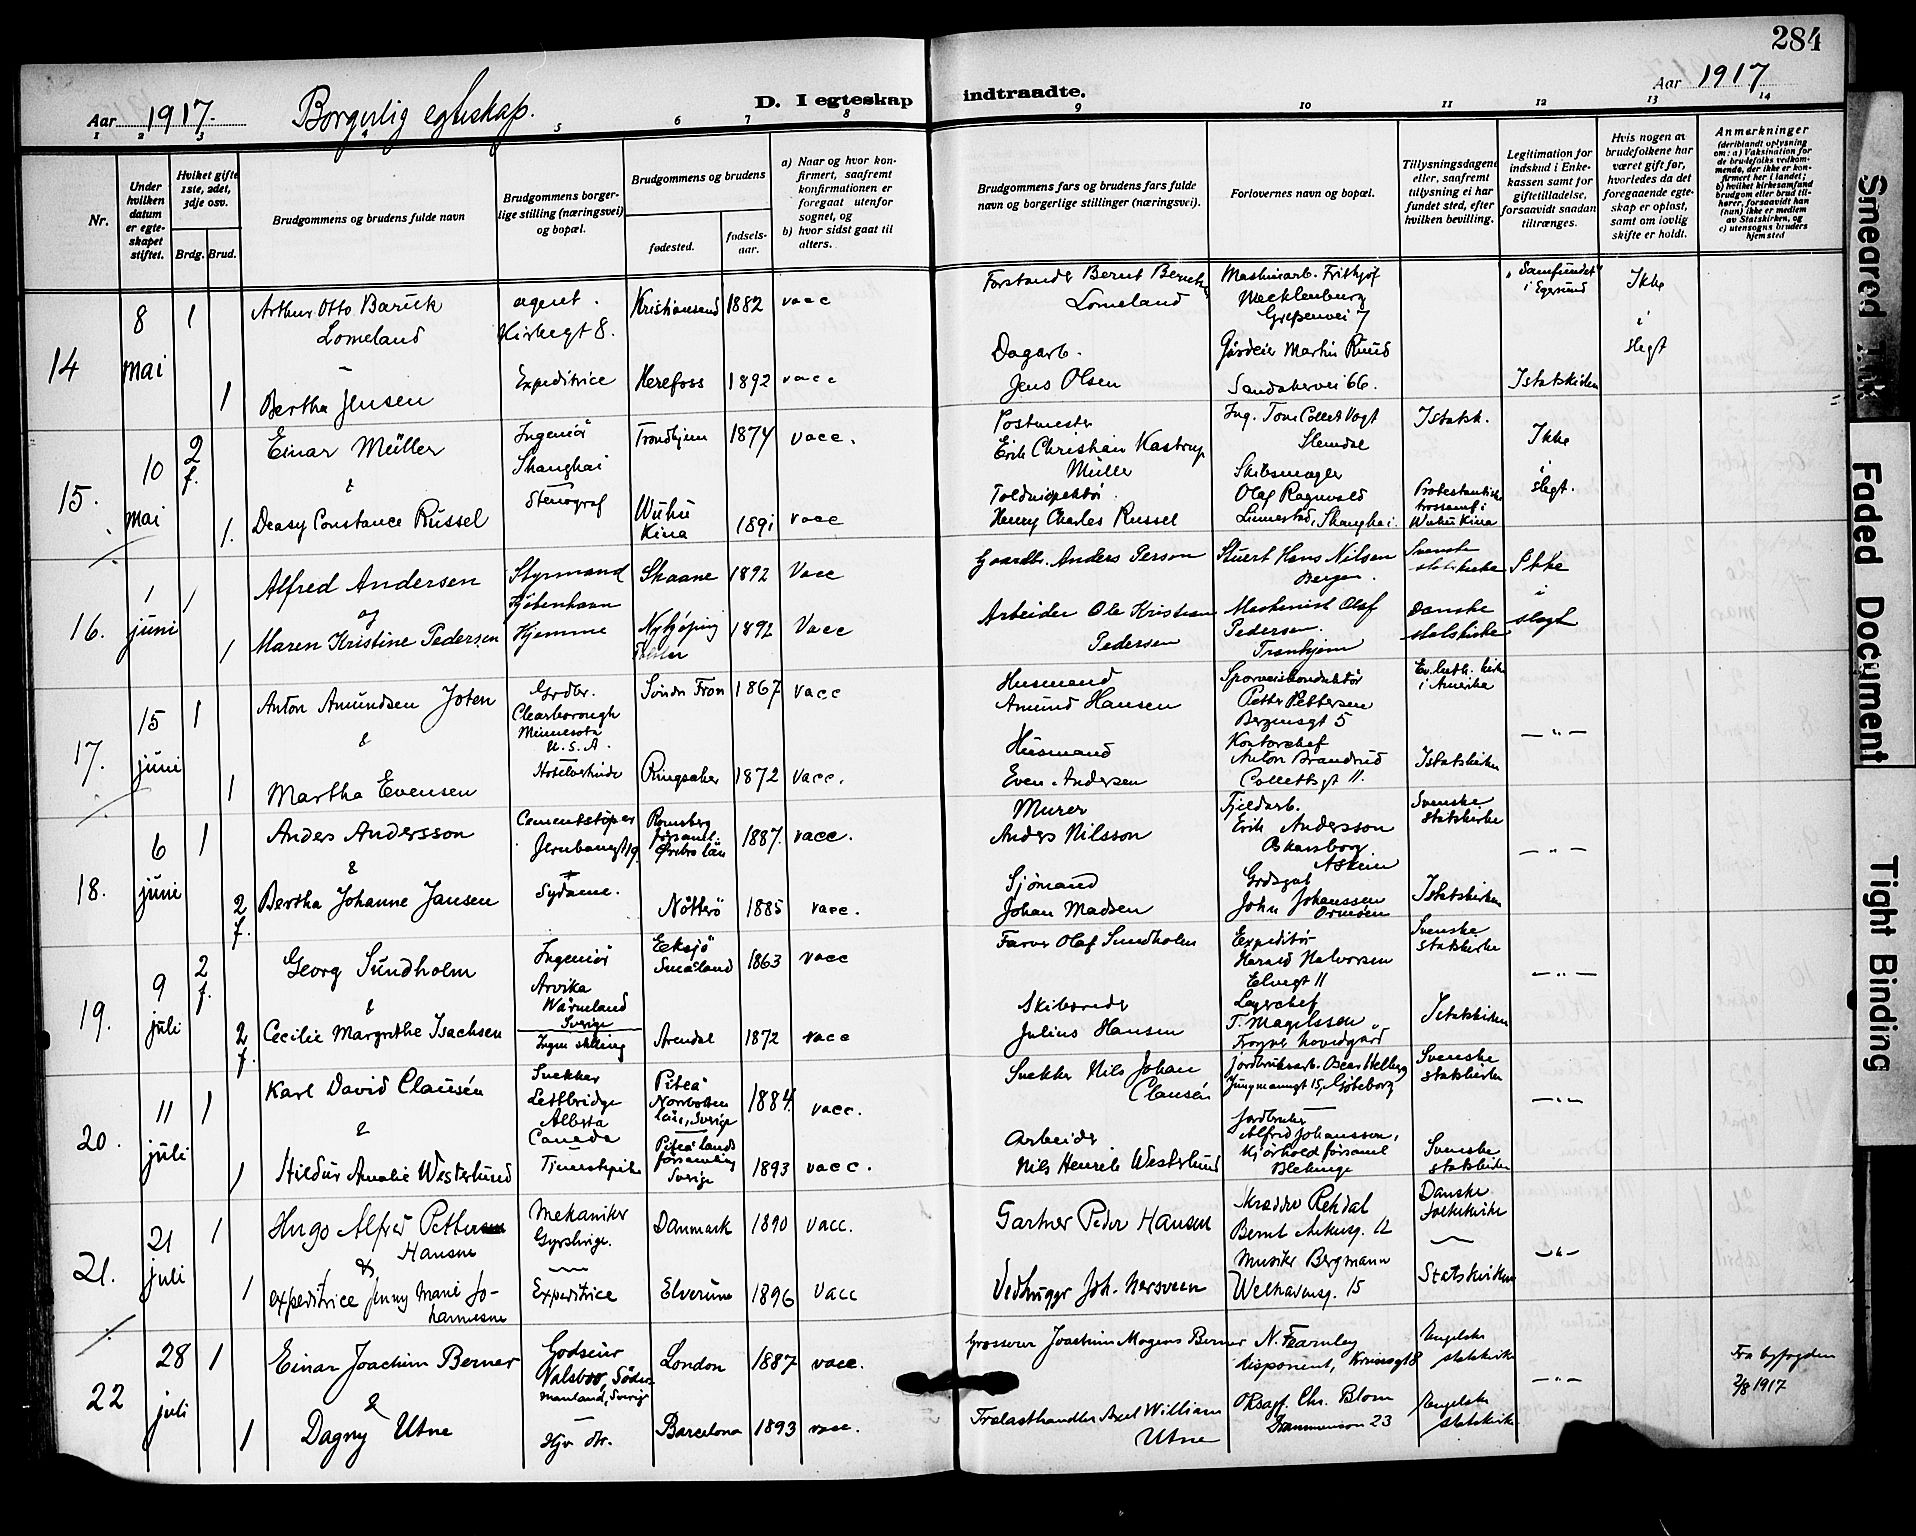 284
Aar 1917. Borgerlig egteskap. D. I egteskap indtraadte. Aar 1917
1 2 3 4 5 6 7 8 9 10 11 12 13 14
Nr.
Under hvilken datum er egteskapet stiftet.
Hvilket gifte 1ste, 2det, 3dje osv.
Brdg. Brud.
Brudgommens og brudens fulde navn
Brudgommens borgerlige stilling (næringsvei) og bopæl.
Brudgommens og brudens
fødested.
fødselsaar.
a) Naar og hvor konfirmert, saafremt konfirmationen er foregaat utenfor sognet, og
b) hvor sidst gaat til alters.
Brudgommens fars og brudens fars fulde navn og borgerlige stillinger (næringsvei).
Forlovernes navn og bopæl.
Tillysningsdagene eller, saafremt tillysning ei har fundet sted, efter hvilken bevilling.
Legitimation for indskud i Enkekassen samt for giftetilladelse, forsaavidt saadan tiltrænges.
Hvis nogen av brudefolkene har været gift før, hvorledes da det foregaaende egteskap er opløst, samt om lovlig skifte er holdt.
Anmerkninger
(deriblandt oplysning om: a) Vaksination for de brudefolks vedkommende, der ikke er konfirmert her i landet; b) hvilket kirkesamfund brudgom eller brud tilhører, forsaavidt han (hun) ikke er medlem av Statskirken, og c) utensogns bruders hjemsted
14 8 mai 1 Arthur Otto Barück Lomeland agent. Kirkegt 8. Kristiansand 1882 vacc
Bernt
Lomeland
Maskinarb. Frithjof Mecklenburg Grefsenvei 7
"Samfundet" i Egersund
Ikke i slegt
1 Bertha Jensen Expeditrice Herefoss 1892 vacc
Dagarb. Jens Olsen
Gårdeier Martin Ruud Sandakervei 66.
Istatskirken
15. 10 mai 2 f. Einar Müller Ingeniør Shanghai Trondhjem 1874 vacc.
Postmester Erik Christian Kastrup Müller
Ing. Tom Collet Vogt Slemdal
Istatsk.
Ikke i slegt.
& 1. Deasy Constance Russel Stenograf Wuhu Kina 1891 vacc
Toldinspektør. Henry Charles Russel
Skibsmægler Olaf Ragnvald Linnestad, Shanghai.
Protestantiske trossamf. i Wuhu Kina
16. 1 juni 1 Alfred Andersen Styrmand Kjøbenhavn Skaane 1892 Vacc
Gaardbr. Anders Person
Stuert Hans Nilsen Bergen.
Svenske statskirke
Ikke i slegt
og 1 Maren Kristine Pedersen Hjemme Nykjøping Falster 1892 Vacc
Arbeider Ole Kristian Pedersen
Maskinist Olaf Pedersen. Tronhjem
Danske statskirke
17. 15 juni 1 Anton Amundsen Joten Grdbr. Clearborough Minnesota U.S.A. Søndre Fron 1867 vacc
Husmand Amund Hansen
Sporveiskonduktør Petter Pettersen Bergensgt 5
Ev. luth. kirke i Amerika
— " —
& 1 Martha Evensen Ringsaker 1872 Vacc.
Husmand Even Andersen
Kontorchef Anton Brandrud Collettsgt 11.
Istatskirken
18. 6 juni 1 Anders Andersson Cementstøper Jernbanegt 19. Ramsberg församl. Örebro län 1887. vacc.
Murer Anders Nilsson
Fjeldarb. Erik Andersson Oskarsborg Askim
Svenske statskirke
— " —
& 2 f. Bertha Johanne Jansen Sydame. Nötterö 1885 vacc.
Sjömand Johan Madsen
John Johanssen Ormøen
Istatskirken
19. 9 juli 2 f. Georg Sundholm Ingeniør Arvika Wärmland Sverige Eeksjö Småland 1863 vacc
Farver Olaf Sundholm
Expeditør Harald Halvorsen Elvegt 11
Svenske statskirke
— " —
& 2 f. Cecilie Margrethe Isachsen Ingen stilling Arendal 1872 vacc
Skibsreder Julius Hansen
Lagerchef T. Magelssen Frogner hovedgaard
Istatskirken
20. 11 juli 1 Karl David Clausén Snekker Lethbridge Alberta Canada Piteå Norbotten län, Sverige 1884. vacc.
Snekker Nils Johan Clausén
Jordbruksarb. Oscar Helberg Jungmansgt 15, Gøteborg
Svenske statskirke
— " —
& 1 Hildur Amalie Westerlund Tjenestepike Piteå lands församling Sverige 1893 vacc.
Arbeider Nils Henrik Westerlund
Jordbruker Alfred Johansson, församl Blekinge
Svenske statskirke
21. 21 juli 1 Hugo Alfred Hansen Mekaniker Danmark 1890 vacc.
Gartner Peder Hansen
Skrædder Rekdal Bernt Ankersg. 12
Danske folkekirke
— " —
& 1 expeditrice Jenny Marie Johannesne Expeditrice Elverum 1896 Vacc
Vedhugger Joh. Nersveen
Musiker Bergmann Welhavensg. 15
Statskirken
22 28 juli 1 Einar Joachim Berner Godseier Valsboo, Södermanland, Sverige London 1887 vacc.
Grosserer Joachim Mogens Berner
N. Fearnley disponent,
Engelske statskirke
— " —
Fra byfogden 2/8 1917
& 1 Dagny Utne Barcelona 1893 vacc.
Trælasthandler Axel William Utne
Chr. Blom Drammensvn 23
Engelske statskirke
Smeared Ink
Faded Document
Tight Binding